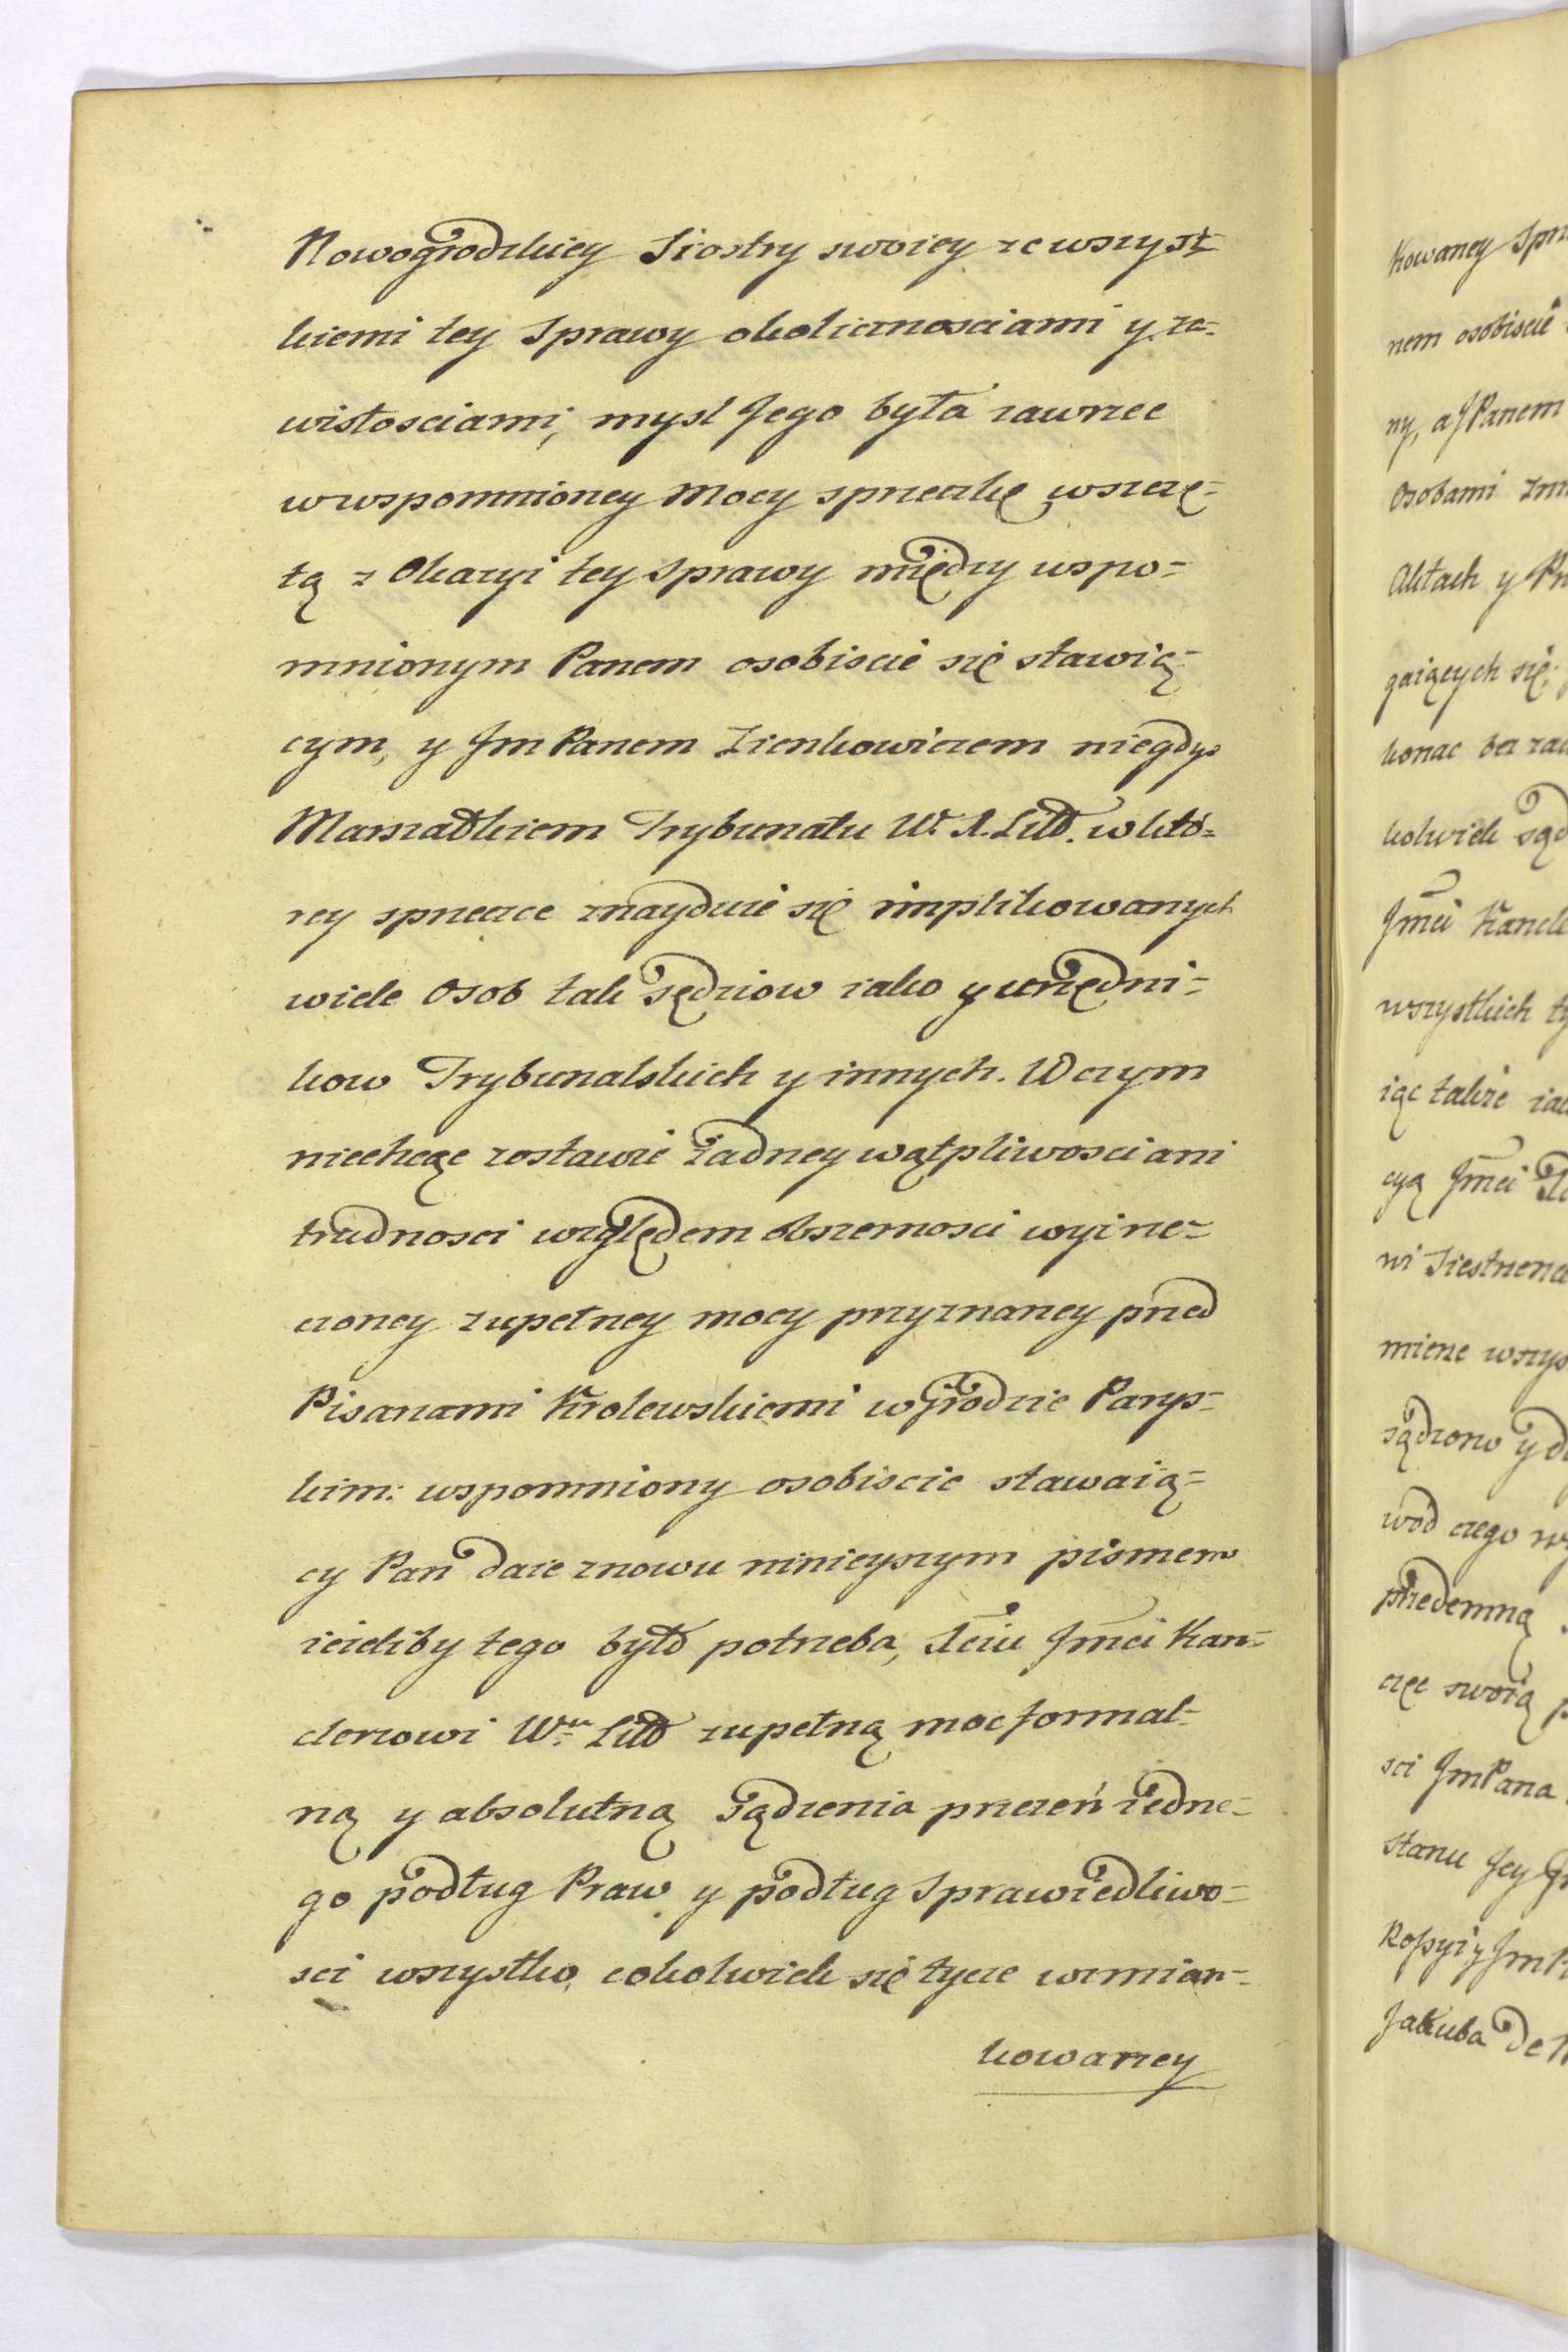 Nowogrodzkiey Siostry swoiey ze wszyst-
kiemi tey Sprawy okolicznosciami y za-
wisłosciami, mysl Jego była zawrzec
w wspomnioney Mocy sprzeczkę wszczę-
tą z Okazyi tey Sprawy między wspo-
mnionym Panem osobiscie się stawią-
cym, y Jm Panem Zienkowiczem niegdys
Marszałkiem Trybunału W. X. Litt. w któ-
rey sprzeczce znayduie się implikowanych
wiele Osob tak Sędziow iako y urzędni-
kow Trybunalskich y innych. W czym
niechcąc zostawić żadney wątpliwosci ani
trudnosci względem obszernosci wyż rze-
czoney zupełney mocy przyznaney przed
Pisarzami Krolewskiemi w Grodzie Parys-
kim: wspomniony osobiscie stawaią-
cy Pan daie znowu ninieyszym pismem
ieżeliby tego było potrzeba, Xciu Jmci Kan-
clerzowi W. Litt zupełną moc formal-
ną y absolutną Sądzenia przezeń iedne-
go podług Praw y podług Sprawiedliwo-
sci wszystko, cokolwiek się tycze wzmian-
kowaney
kowaney
nem osobiscie
ny, a JPanem
Osobami
Aktach y
gaiących się,
konac bez
kolwiek
Jmci
wszystkich
iąc także
cyą Jmci
wi Siestrzenc
mienne
sądzono y
wod czego
przedemną
częc swoią
sci JmPana
stanu Jey
Kopyi y
Jakuba De